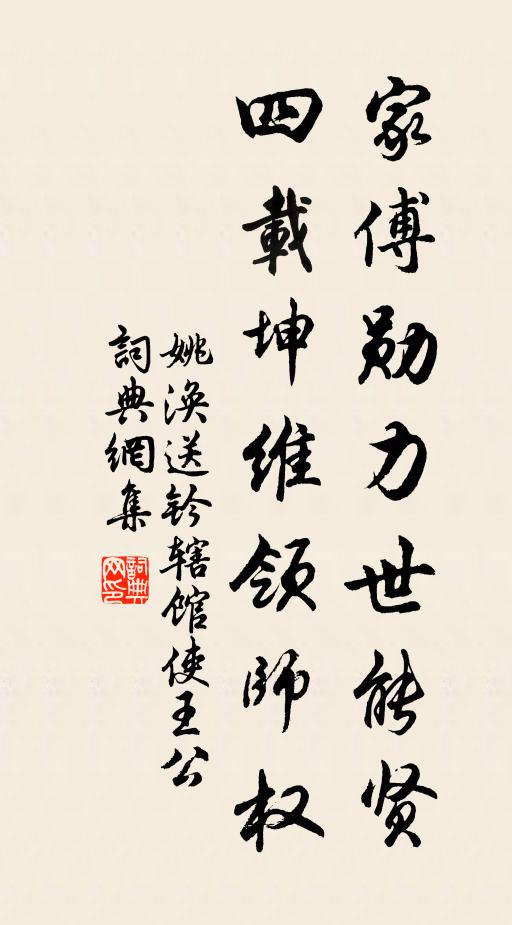 家傅勋力世能贤
四載坤维领師权
姚涣送鈐辖馆使王公
詞典網集
詞典网印